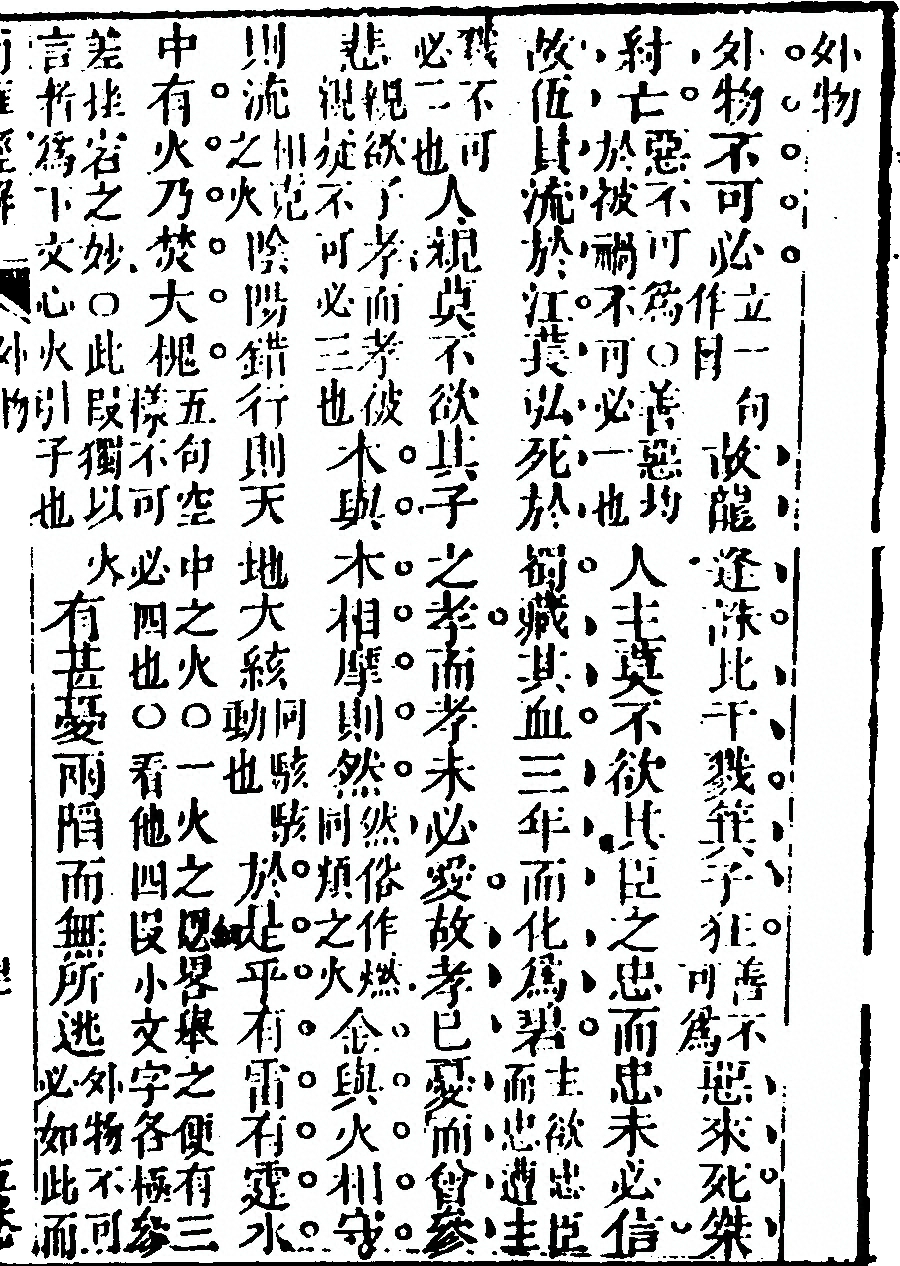 外物
外物不可必立一句作目故龍逢誅比干戮箕子狂善不可爲惡來死桀
紂亡惡不可爲○善惡均於被禍不可必一也人主莫不欲其臣之忠而忠未必信
故伍員流於江萇弘死於蜀藏其血三年而化爲碧主欲忠臣而忠遭主
戮不可必二也人親莫不欲其子之孝而孝未必愛故孝已憂而曾參
悲親欲子孝而孝彼親從不可必三也木與木相摩則然然俗作燃同類之火金與火相守
則流相克之火陰陽錯行則天地大絯同駭駭動也於是乎有雷有霆水
中有火乃焚大槐五句空中之火○一火之畧舉之便有三樣不可必四也○看他四段小文字各極參
差挫宕之妙○此段獨以火言析爲下文心火引子也有甚憂兩陷而無所逃外物不可必如此而
外物